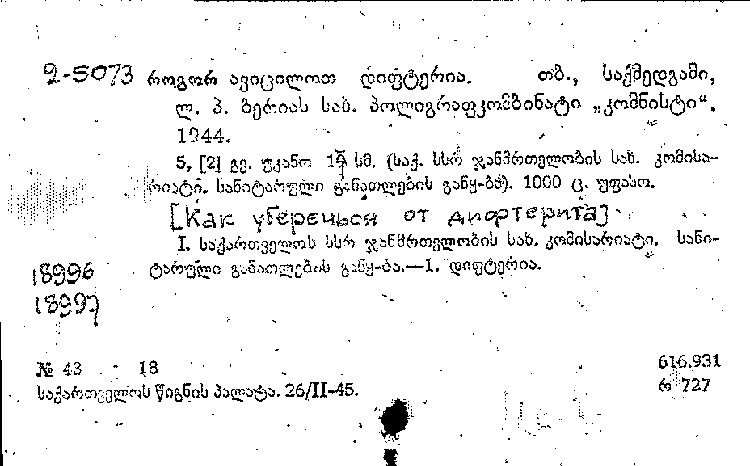 2-5073 როგორ ავიცილოთ დიფტერია. თბ., საქმედგამი,
ლ. პ. ბერიას სახ. პოლიგრაფკომბინატი „კომნისტი“.
1944.
5, [2] გვ. უკანო 14 სმ. (საქ. სსრ ჯანმრთელობის სახ. კომისა-
რიატი. სანიტარული განათლების განყ-ბა). 1000 ც. უფასო.
[Как уберечься от дифтерита]
I. საქართველოს სსრ ჯანმრთელობის სახ. კომისარიატი. სანი-
ტარული განათლების განყ-ბა.—1. დიფტერია.
18996
18997
№ 43 18 616.931
საქართველოს წიგნის პალატა. 26/II-45. რ 727